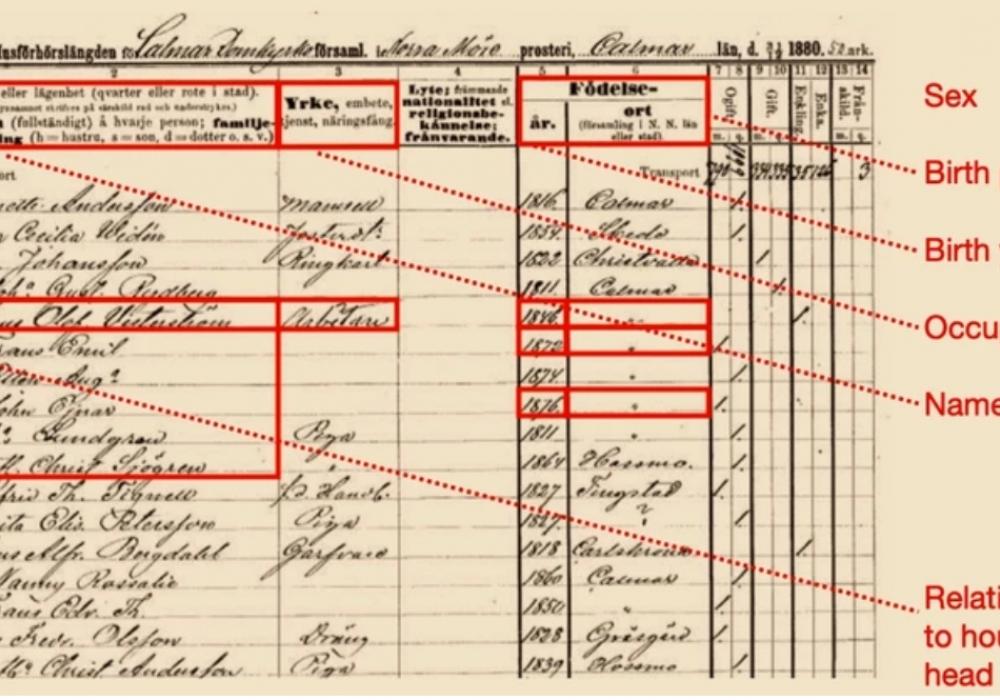 nsförhörslängden för Calmar Domkyrko församl. i Norra Möre prosteri, Calmar län, d. 31/12 1880. 52 ark.
2 3 4 5 6 7 8 9 10 11 12 13 14
eller lägenhet (qvarter eller rote i stad).
(fullständigt) å hvarje person; familje-
ning (h = hustru, s = son, d = dotter o. s. v.)
Yrke, embete,
tjenst, näringsfång.
Lyte; främmande
nationalitet el.
religionsbe-
kännelse;
frånvarande.
Födelse-
år.
ort
(församling i N. N. län
eller stad).
Ogift. Gift. Enkling. Enka. Från-
skild.
m. q. m. q. m. q.
ort Transport 3
Andersson mamsell 1816 Calmar
Cecilia Widén 1854 Skede
Johansson Ringkarl 1822 Christvalla
Gust. Rydberg 1811 Calmar
Olof Westerström Arbetare 1846
Frans Emil 1872
Aug. 1874
John Einar 1876
Lundgren Piga 1811
Christ Sjögren 1864 Hossmo.
Th. Tignell fd. Handl. 1827 Tingstad
Elis. Petersson Piga 1827 ?
Alfr. Bergdahl Garfvare 1818 Carlskrona
Nanny Rosalie 1860 Calmar
Frans Edv. Th. 1850
Fredr. Olsson Dräng 1828 Gräsgård
Christ Andersson Piga 1839 Hossmo
Sex
Birth
Birth
Occu
Name
Relati
to hou
head